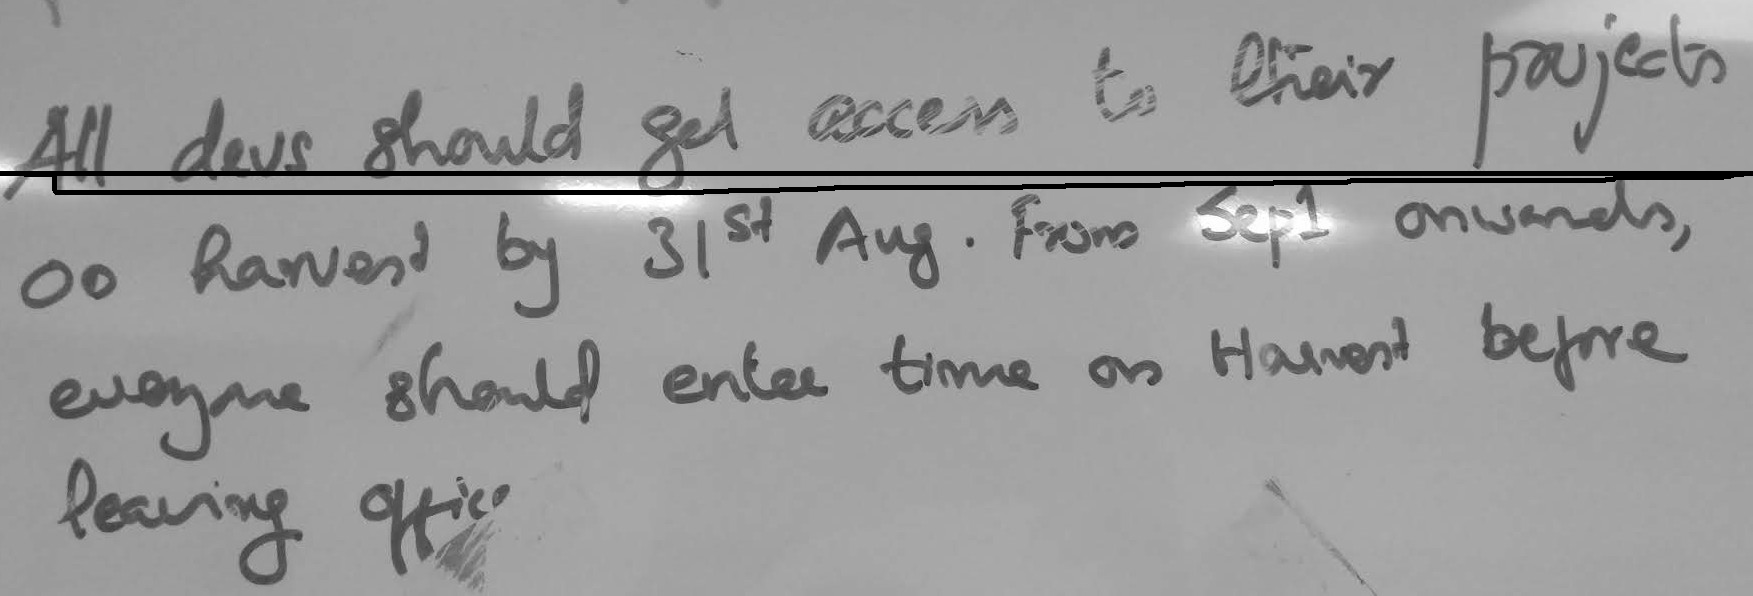 All devs should get access to their projects
on harvest by 31st Aug. From Sep1 onwards,
everyone should enter time on Harvest before
leaving office